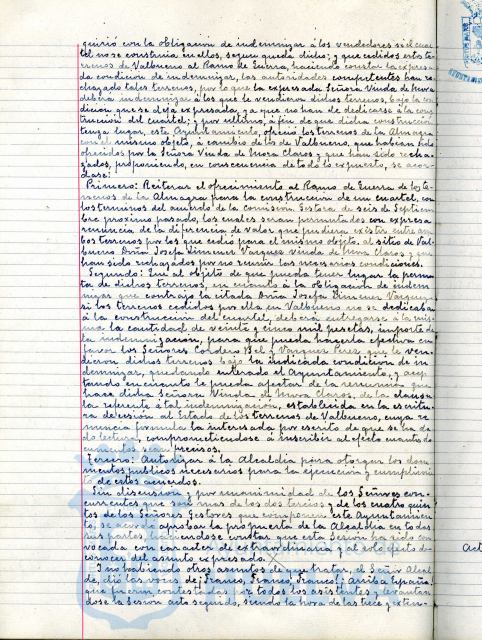 quirió con la obligacion de indemnizar á los vendedores si el cuar
tel no se construia en ellos, segun queda dicho; y que cedidos estos te
rrenos de Valbueno al Ramo de Guerra, haciendo constar la expresa
da condicion de indemnizar, las autoridades competentes han re
chazado tales terrenos, por lo que la expresada Señora Viuda de Mora
deberá indemnizar á los que le vendieron dichos terrenos, bajo la con
dicion que se deja expresada, ya que no han de dedicarse á la cons
truccion del cuartel; y por ultimo, á fin de que dicha construccion
tenga lugar, este Ayuntamiento, ofreció los terrenos de la Almagra
con el mismo objeto, á cambio de los de Valbueno, que habian sido
ofrecidos por la Señora Viuda de Mora Claros y que han sido recha
zados, proponiendo, en consecuencia de todo lo expuesto, se acor
dase:
Primero: Reiterar el ofrecimiento al Ramo de Guerra de los te
rrenos de la Almagra para la construccion de un cuartel, con
los terminos del acuerdo de la Comision Gestora de seis de Septiem
bre proximo pasado, los cuales seran permutados con expresa
renuncia de la diferencia de valor que pudiera existir entre am
bos terrenos por los que cedio para el mismo objeto, al sitio de Val
bueno Doña Josefa Jimenez Vazquez Viuda de Mora Claros y que
han sido rechazados por no reunir las necesarias condiciones.
Segundo: Que al objeto de que pueda tener lugar la permu
ta de dichos terrenos, en cuanto á la obligacion de indem
nizar que contrajo la citada Doña Josefa Jimenez Vazquez
si los terrenos cedidos por ella en Valbueno no se dedicaban
á la construccion del cuartel, deberá entregarse á la mis
ma la cantidad de veinte y cinco mil pesetas, importe de
la indemnizacion, para que pueda hacerla efectiva en
favor los Señores Cordero Bel y Vazquez Perez, que le ven
dieron dichos terrenos bajo la indicada condicion de in
demnizar, quedando enterado el Ayuntamiento, y acep
tando en cuanto le pueda afectar de la renuncia que
hace dicha Señora Viuda de Mora Claros, de la clausu
la referente á tal indemnizacion, establecida en la escritu
ra de cesion al Estado de los terrenos de Valbueno, cuya re
nuncia formula la interesada por escrito de que se ha da
do lectura, comprometiendose á suscribir al efecto cuantos do
cumentos sean precisos.
Tercero: Autorizar á la Alcaldia para otorgar los docu
mentos publicos necesarios para la ejecucion y cumplimien
to de estos acuerdos.
Sin discusion y por unanimidad de los Señores con
currentes que son mas de los dos tercios y de los cuatro quin
tos de los Señores Gestores que componen este Ayuntamien
to, se acordó aprobar la propuesta de la Alcaldia en todas
sus partes, haciendose constar que esta Sesion ha sido con
vocada con caracter de extraordinaria y al solo efecto de
conocer del asunto expresado.
Y no habiendo otros asuntos de que tratar, el Señor Alcal
de, dió las voces de ¡Franco, Franco, Franco! ¡Arriba España!
que fueron contestadas por todos los asistentes y levantan
dose la Sesion acto seguido, siendo la hora de las trece y exten-
Act